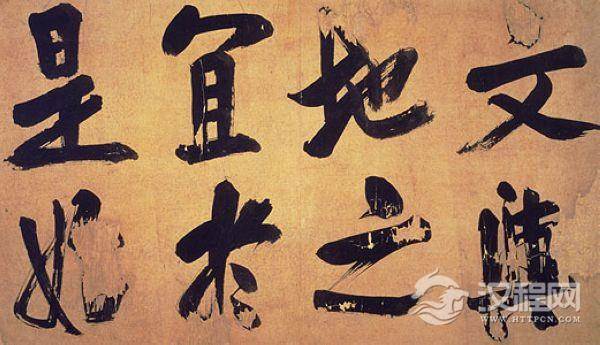 文與
地之
宜於
是始
汉程网
WWW.HTTPCN.COM